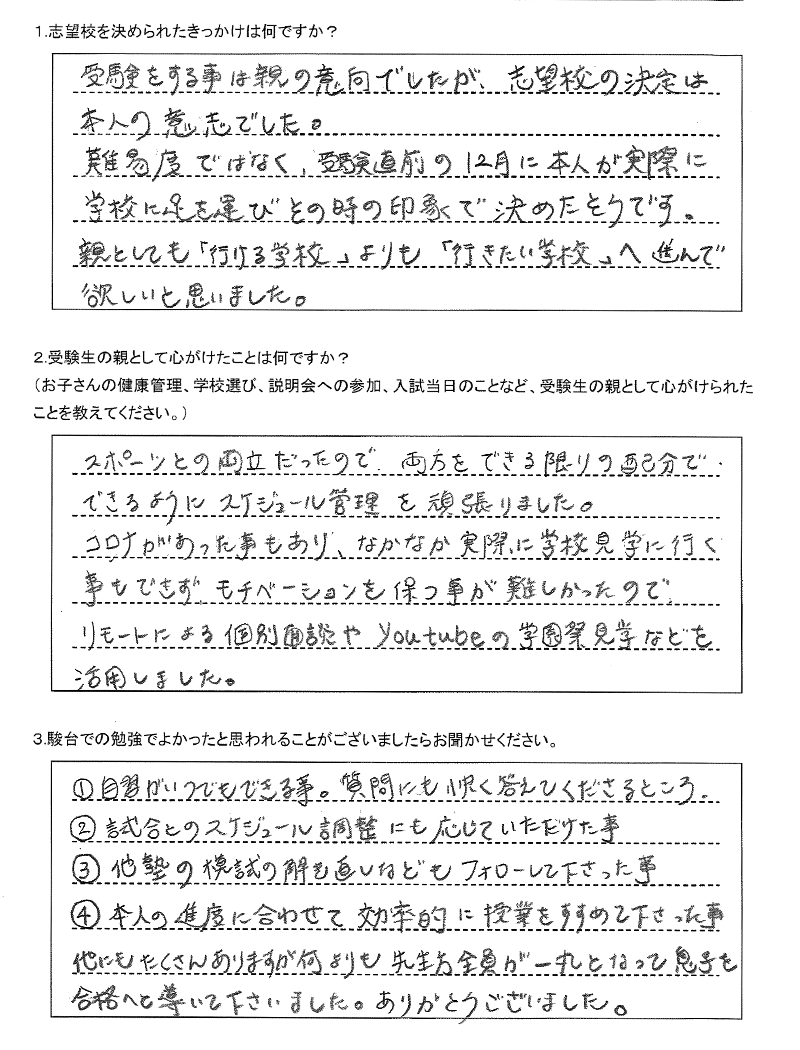 1.志望校を決められたきっかけは何ですか？
受験をする事は親の意向でしたが、志望校の決定は
本人の意志でした。
難易度ではなく、受験直前の12月に本人が実際に
学校に足を運びその時の印象で決めたそうです。
親としても「行ける学校」よりも「行きたい学校」へ進んで
欲しいと思いました。
2.受験生の親として心がけたことは何ですか？
（お子さんの健康管理、学校選び、説明会への参加、入試当日のことなど、受験生の親として心がけられた
ことを教えてください。）
スポーツとの両立だったので、両方をできる限りの配分で
できるようにスケジュール管理を頑張りました。
コロナがあった事もあり、なかなか実際に学校見学に行く
事もできず、モチベーションを保つ事が難しかったので、
リモートによる個別面談やYoutubeの学園祭見学などを
活用しました。
3.駿台での勉強でよかったと思われることがございましたらお聞かせください。
①自習がいつでもできる事。質問にも快く答えてくださるところ。
②試合とのスケジュール調整にも応じていただけた事
③他塾の模試の解き直しなどもフォローして下さった事
④本人の進度に合わせて効率的に授業をすすめて下さった事
他にもたくさんありますが何よりも先生方全員が一丸となって息子を
合格へと導いて下さいました。ありがとうございました。